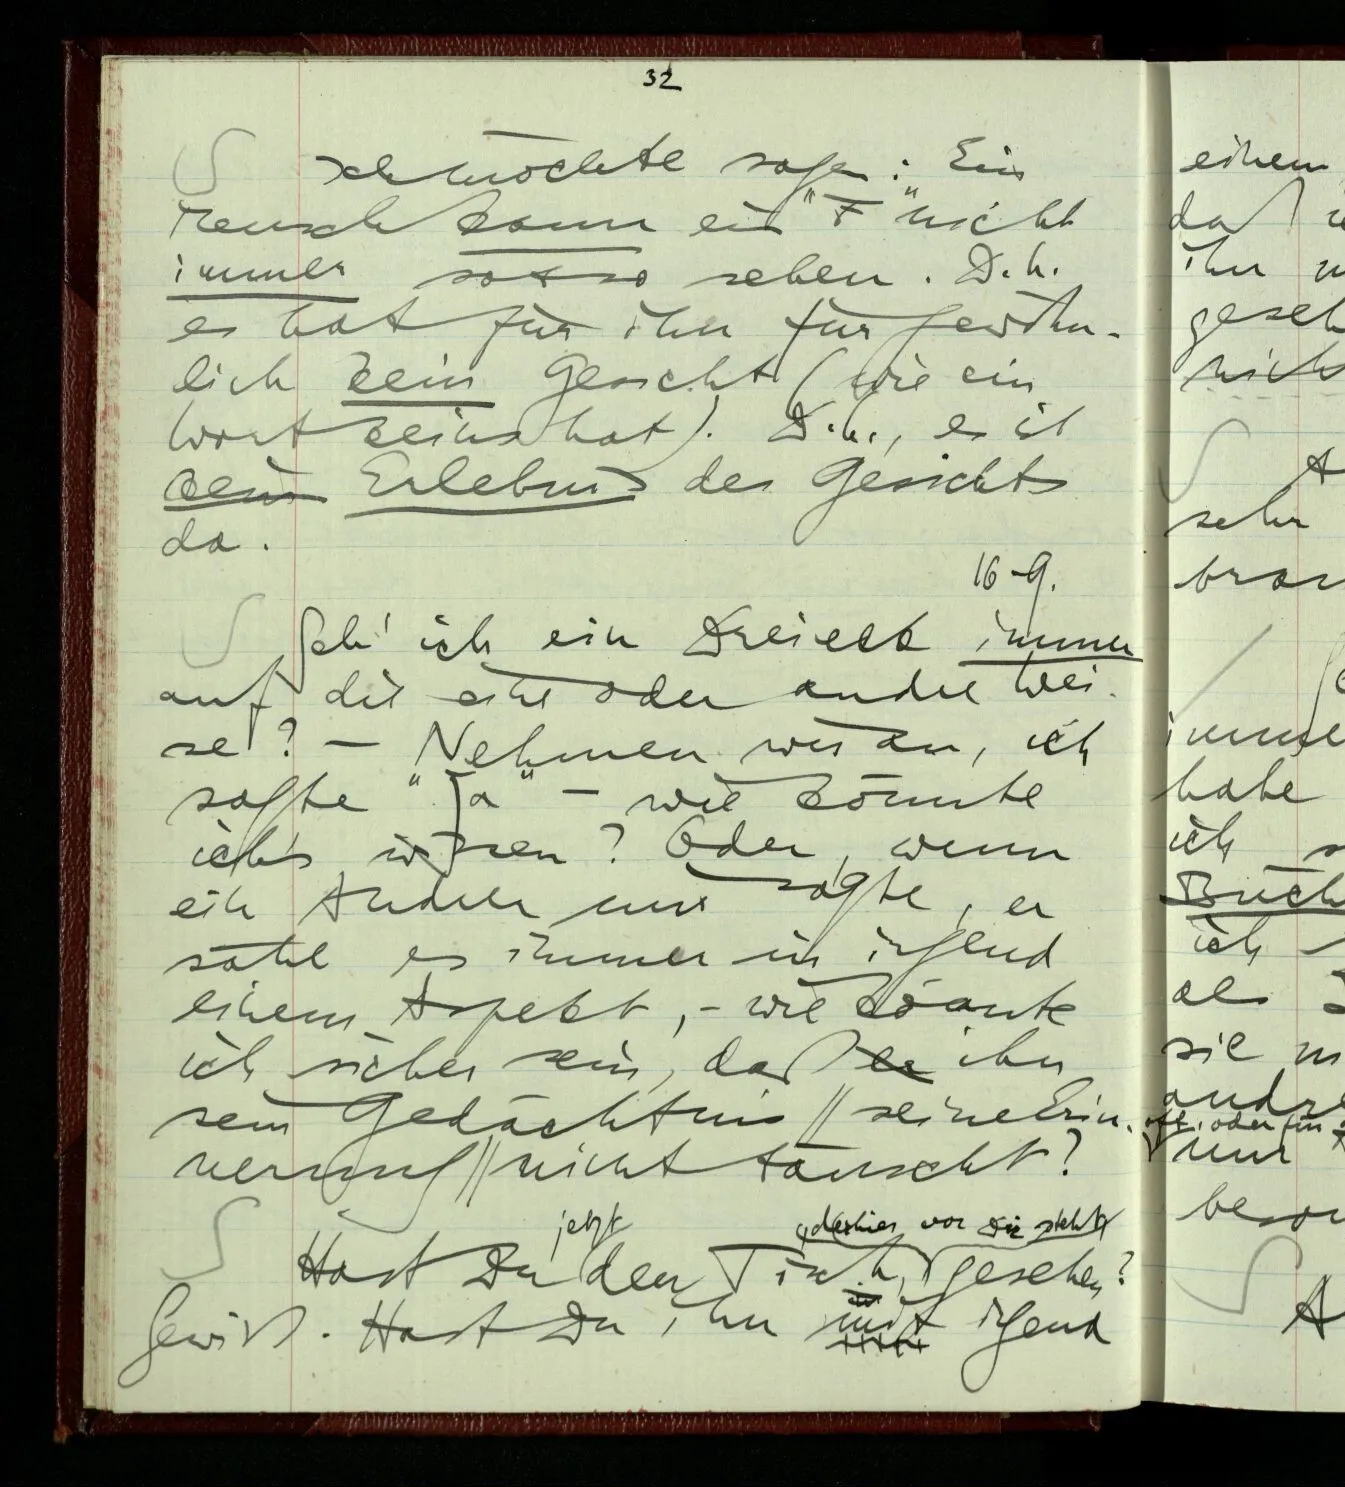 32
Ich möchte sagen: Ein
Mensch kann ein "F" nicht
immer so & so sehen. D.h.
es hat für ihn für gewöhn-
lich kein Gesicht (wie ein
Wort keins hat). D.h., es ist
kein Erlebnis des Gesichts
da.
16-9.
Seh' ich ein Dreieck immer
auf die eine oder andre Wei-
se? – Nehmen wir an, ich
sagte "Ja" – wie könnte
ich's wissen? Oder, wenn
ein Andrer mir sagte, er
sähe es immer in irgend
einem Aspekt, – wie könnte
ich sicher sein, daß er ihn
sein Gedächtnis // seine Erin-
nerung // nicht täuscht?
jetzt der hier vor Dir steht
Hast Du den Tisch, gesehen?
Gewiß. Hast Du ihn mit irgend
einem
daß
ihn
gese
nich
sehr
imme
habe
ich
ich
als
sie
andre
oft, oder im
nur
A